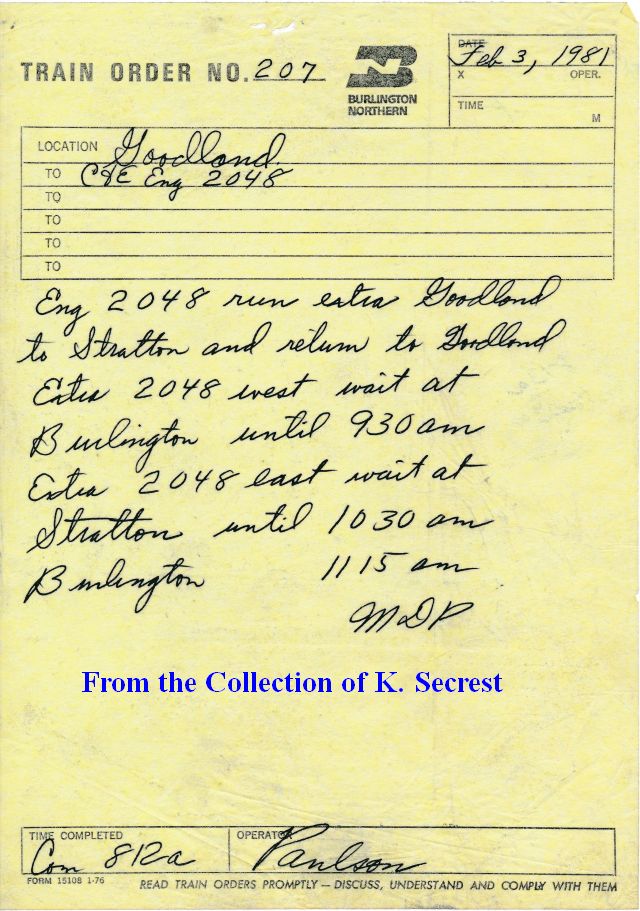 TRAIN ORDER NO. 207
BURLINGTON
NORTHERN
DATE
Feb 3, 1981
X OPER.
TIME
M
LOCATION Goodland
TO C&E Eng 2048
TO
TO
TO
TO
Eng 2048 run extra Goodland
to Stratton and return to Goodland
Extra 2048 west wait at
Burlington until 930 am
Extra 2048 east wait at
Stratton until 1030 am
Burlington 1115 am
MDP
From the Collection of K. Secrest
TIME COMPLETED OPERATOR
Com 812a Paulson
FORM 15108 1-76 READ TRAIN ORDERS PROMPTLY — DISCUSS, UNDERSTAND AND COMPLY WITH THEM